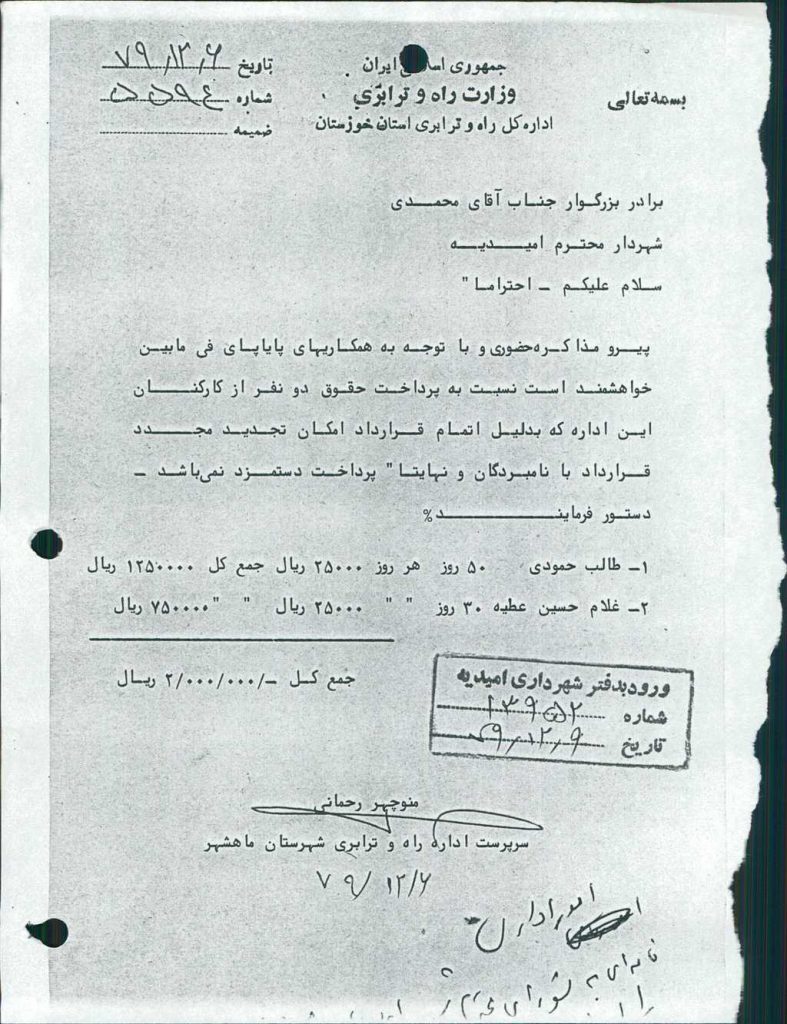 بسمه تعالی
جمهوری اسلامی ایران
وزارت راه و ترابری
اداره کل راه و ترابری استان خوزستان
تاریخ ۷۹/۱۲/۶
شماره ۵۵۹۴
ضمیمه
برادر بزرگوار جناب آقای محمدی
شهردار محترم امیدیه
سلام علیکم ـ احتراما "
پیرو مذاکره حضوری و با توجه به همکاریهای پایاپای فی مابین
خواهشمند است نسبت به پرداخت حقوق دو نفر از کارکنان
این اداره که بدلیل اتمام قرارداد امکان تجدید مجدد
قرارداد با نامبردگان و نهایتا " پرداخت دستمزد نمی‌باشد ـ
دستور فرمایند%
۱ـ طالب حمودی ۵۰ روز هر روز ۲۵۰۰۰ ریال جمع کل ۱۲۵۰۰۰۰ ریال
۲ـ غلام حسین عطیه ۳۰ روز " " ۲۵۰۰۰ ریال " " ۷۵۰۰۰۰ ریال
جمع کل ـ/۲/۰۰۰/۰۰۰ ریال
ورود بدفتر شهرداری امیدیه
شماره ۱۳۹۵۲
تاریخ ۷۹/۱۲/۹
منوچهر رحمانی
سرپرست اداره راه و ترابری شهرستان ماهشهر
۷۹/۱۲/۶
امور اداری
نامه‌ای به شورای